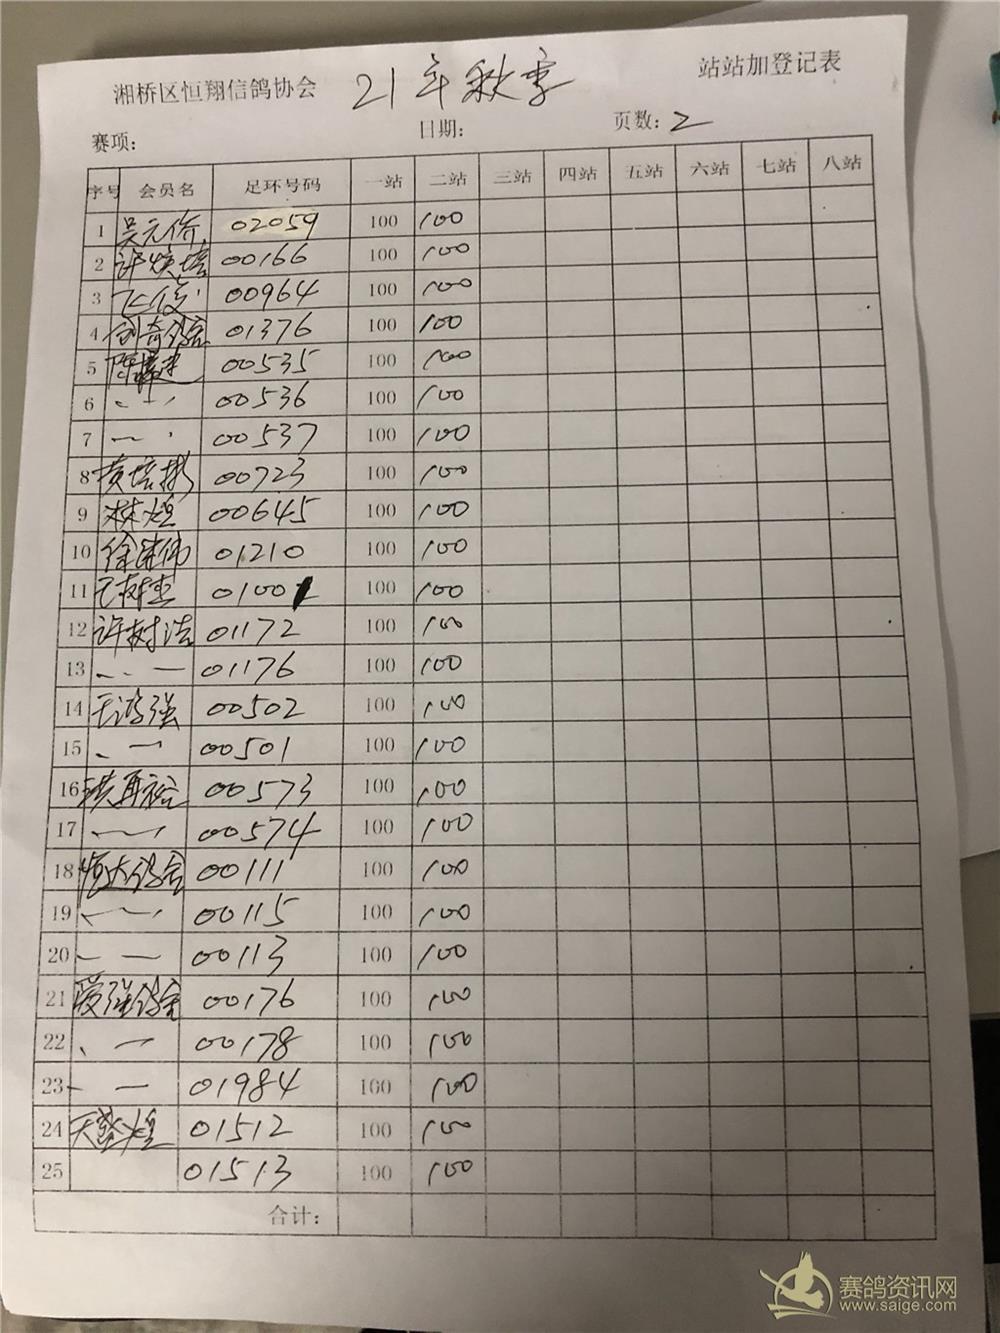 湘桥区恒翔信鸽协会 21年秋季 站站加登记表
赛项: 日期: 页数: 2
序号 会员名 足环号码 一站 二站 三站 四站 五站 六站 七站 八站
1 吴元侨 02059 100 100
2 许焕培 00166 100 100
3 飞俊 00964 100 100
4 创奇鸽舍 01376 100 100
5 陈 00535 100 100
6 〃 00536 100 100
7 〃 00537 100 100
8 黄培彬 00723 100 100
9 林煌 00645 100 100
10 徐 伟 01210 100 100
11 树 01001 100 100
12 许树浩 01172 100 100
13 〃 01176 100 100
14 强 00502 100 100
15 〃 00501 100 100
16 洪再裕 00573 100 100
17 〃 00574 100 100
18 恒达鸽舍 00111 100 100
19 〃 00115 100 100
20 〃 00113 100 100
21 爱强鸽舍 00176 100 100
22 〃 00178 100 100
23 〃 01984 100 100
24 煌 01512 100 100
25 01513 100 100
合计:
赛鸽资讯网
www.saige.com